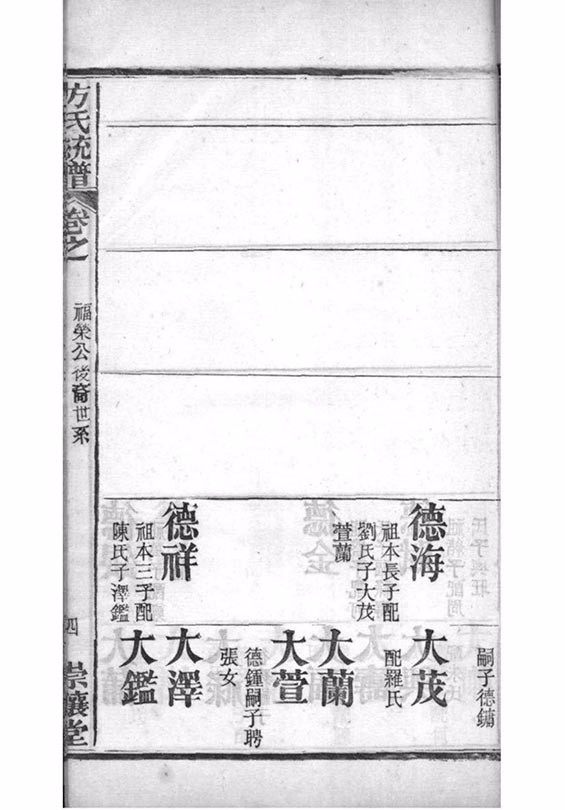 德海
祖本長子配
劉氏子大茂
萱蘭
德祥
祖本三子配
陳氏子澤鑑
嗣子德鏞
大茂
配羅氏
大蘭
大萱
德鍾嗣子聘
張女
大澤
大鑑
方氏統譜
卷之
福榮公後裔世系
四
崇讓堂